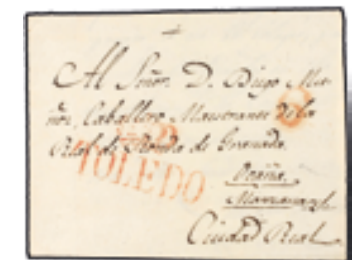 Al Señor D. Diego Mu-
ñoz, Caballero Maestrante de la
Real de Ronda de Granada.
TOLEDO
Ocaña.
Manzanares
Ciudad Real